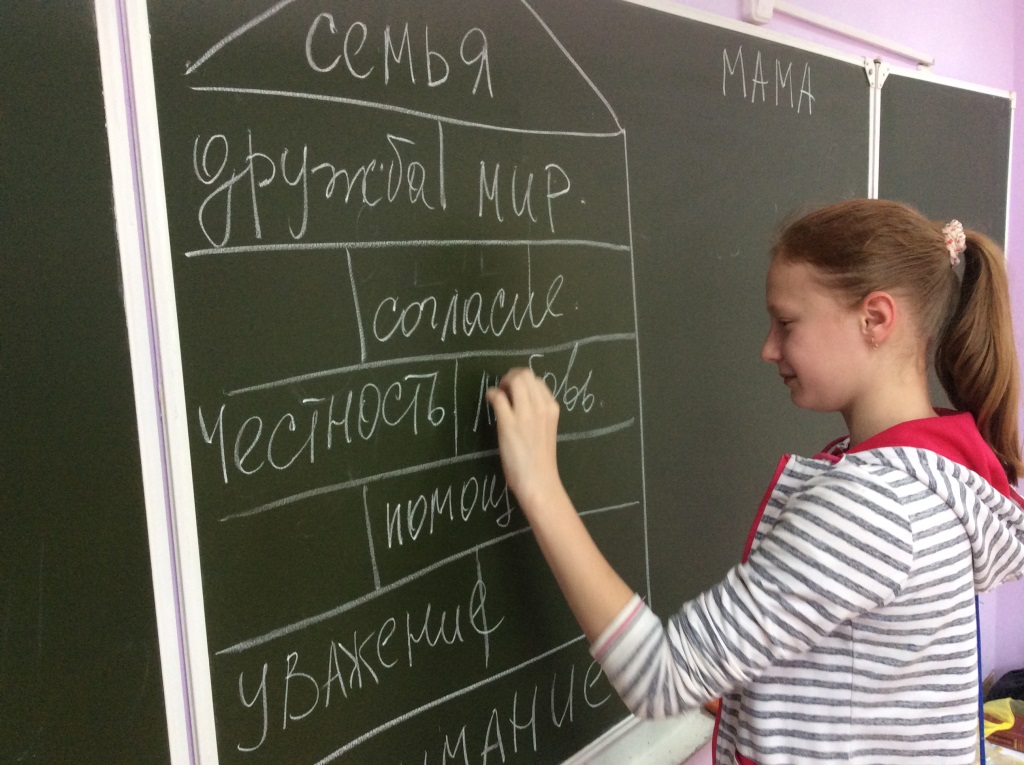 семья
МАМА
дружба мир.
согласие.
Честность любовь.
помощ
уважение